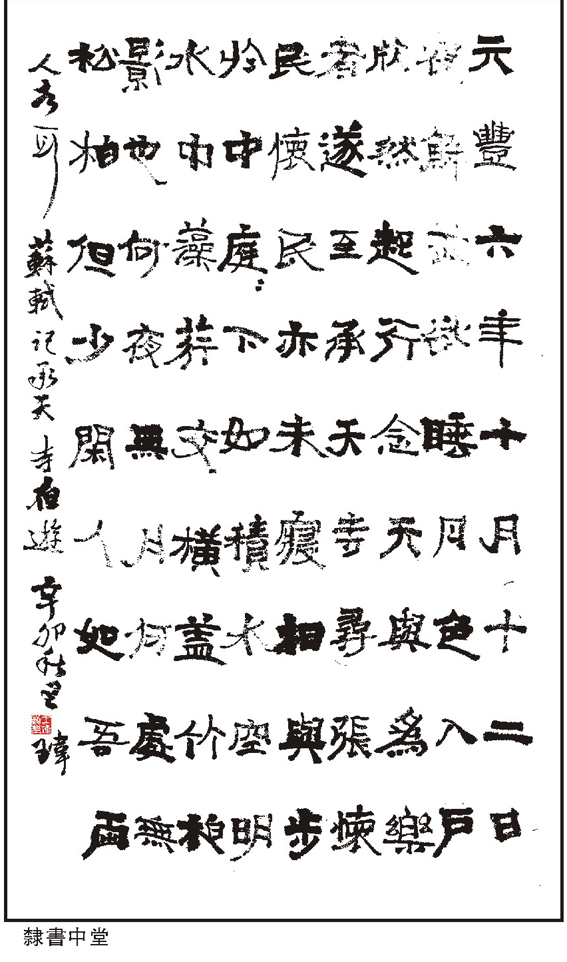 元豐六年十月十二日
夜解衣欲睡月色入戶
欣然起行念天與爲樂
者遂至承天寺尋張懷
民懷民亦未寢相與步
於中庭:下如積水空明
水中藻荇交橫盖竹柏
影也何夜無月何處無
松柏但少閑人如吾兩
人者耳 蘇軾記承天寺夜遊 辛卯秋 瑋
隸書中堂